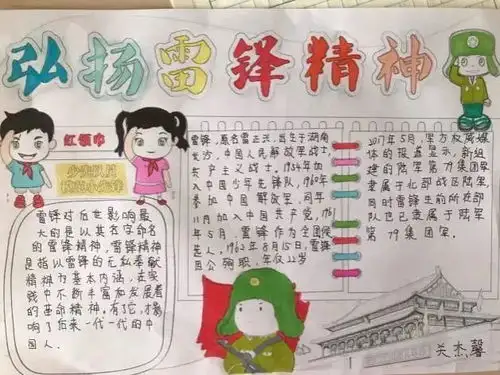 弘扬雷锋精神
红领巾
雷锋对后世影响最
大的是以其名字命名
的雷锋精神，雷锋精神
是指以雷锋的无私奉献
精神为基本内涵，在实
践中不断丰富和发展着
的革命精神。有了它，才影
响了后来一代一代的中
国人。
雷锋，原名雷正兴，出生于湖南
长沙，中国人民解放军战士，
共产主义战士。1954年加
入中国少年先锋队，1960年
参加中国解放军，同年
11月加入中国共产党，1961
年5月，雷锋作为全国候
选人，1962年8月15日，雷锋
因公殉职，年仅22岁
2017年5月，军方权属媒
体的报道显示，新组
建的陆军第79集团军
隶属于北部战区陆军，
同时雷锋生前所在部
队也已隶属于陆军
第79集团军。
关杰馨